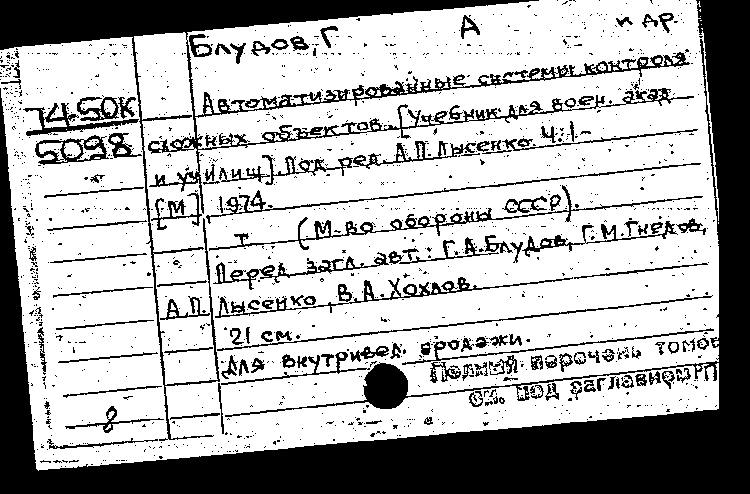 Блудов, Г А и др.
74-50К
5098
Автоматизированные системы контроля
сложных объектов. [Учебник для воен. акад.
и училищ]. Под ред. А.П. Лысенко. Ч. 1-
[М], 1974.
т (М-во обороны СССР).
Перед загл. авт.: Г.А. Блудов, Г.М. Гнедов,
А.П. Лысенко, В.А. Хохлов.
21 см.
Для внутривед. продажи.
Полный перечень томов
см. под заглавном РП
8